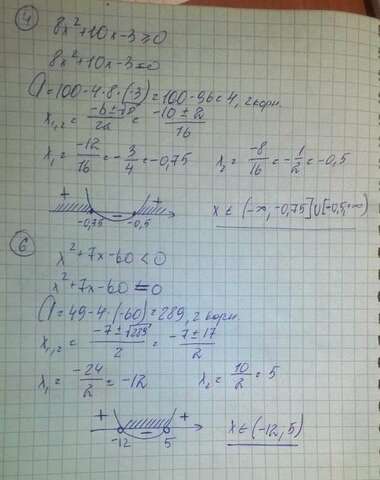 ④ 8x²+10x-3≥0
8x²+10x-3=0
D=100-4·8·(-3)=100-96=4, 2 корн.
x₁,₂ = (-b±√D)/2a = (-10±2)/16
x₁ = -12/16 = -3/4 = -0,75 x₂ = -8/16 = -1/2 = -0,5
+ - + -0,75 -0,5 x ∈ (-∞, -0,75] ∪ [-0,5, +∞)
⑥ x²+7x-60<0
x²+7x-60=0
D=49-4·(-60)=289, 2 корн.
x₁,₂ = (-7±√289)/2 = (-7±17)/2
x₁ = -24/2 = -12 x₂ = 10/2 = 5
+ - + -12 5 x ∈ (-12, 5)